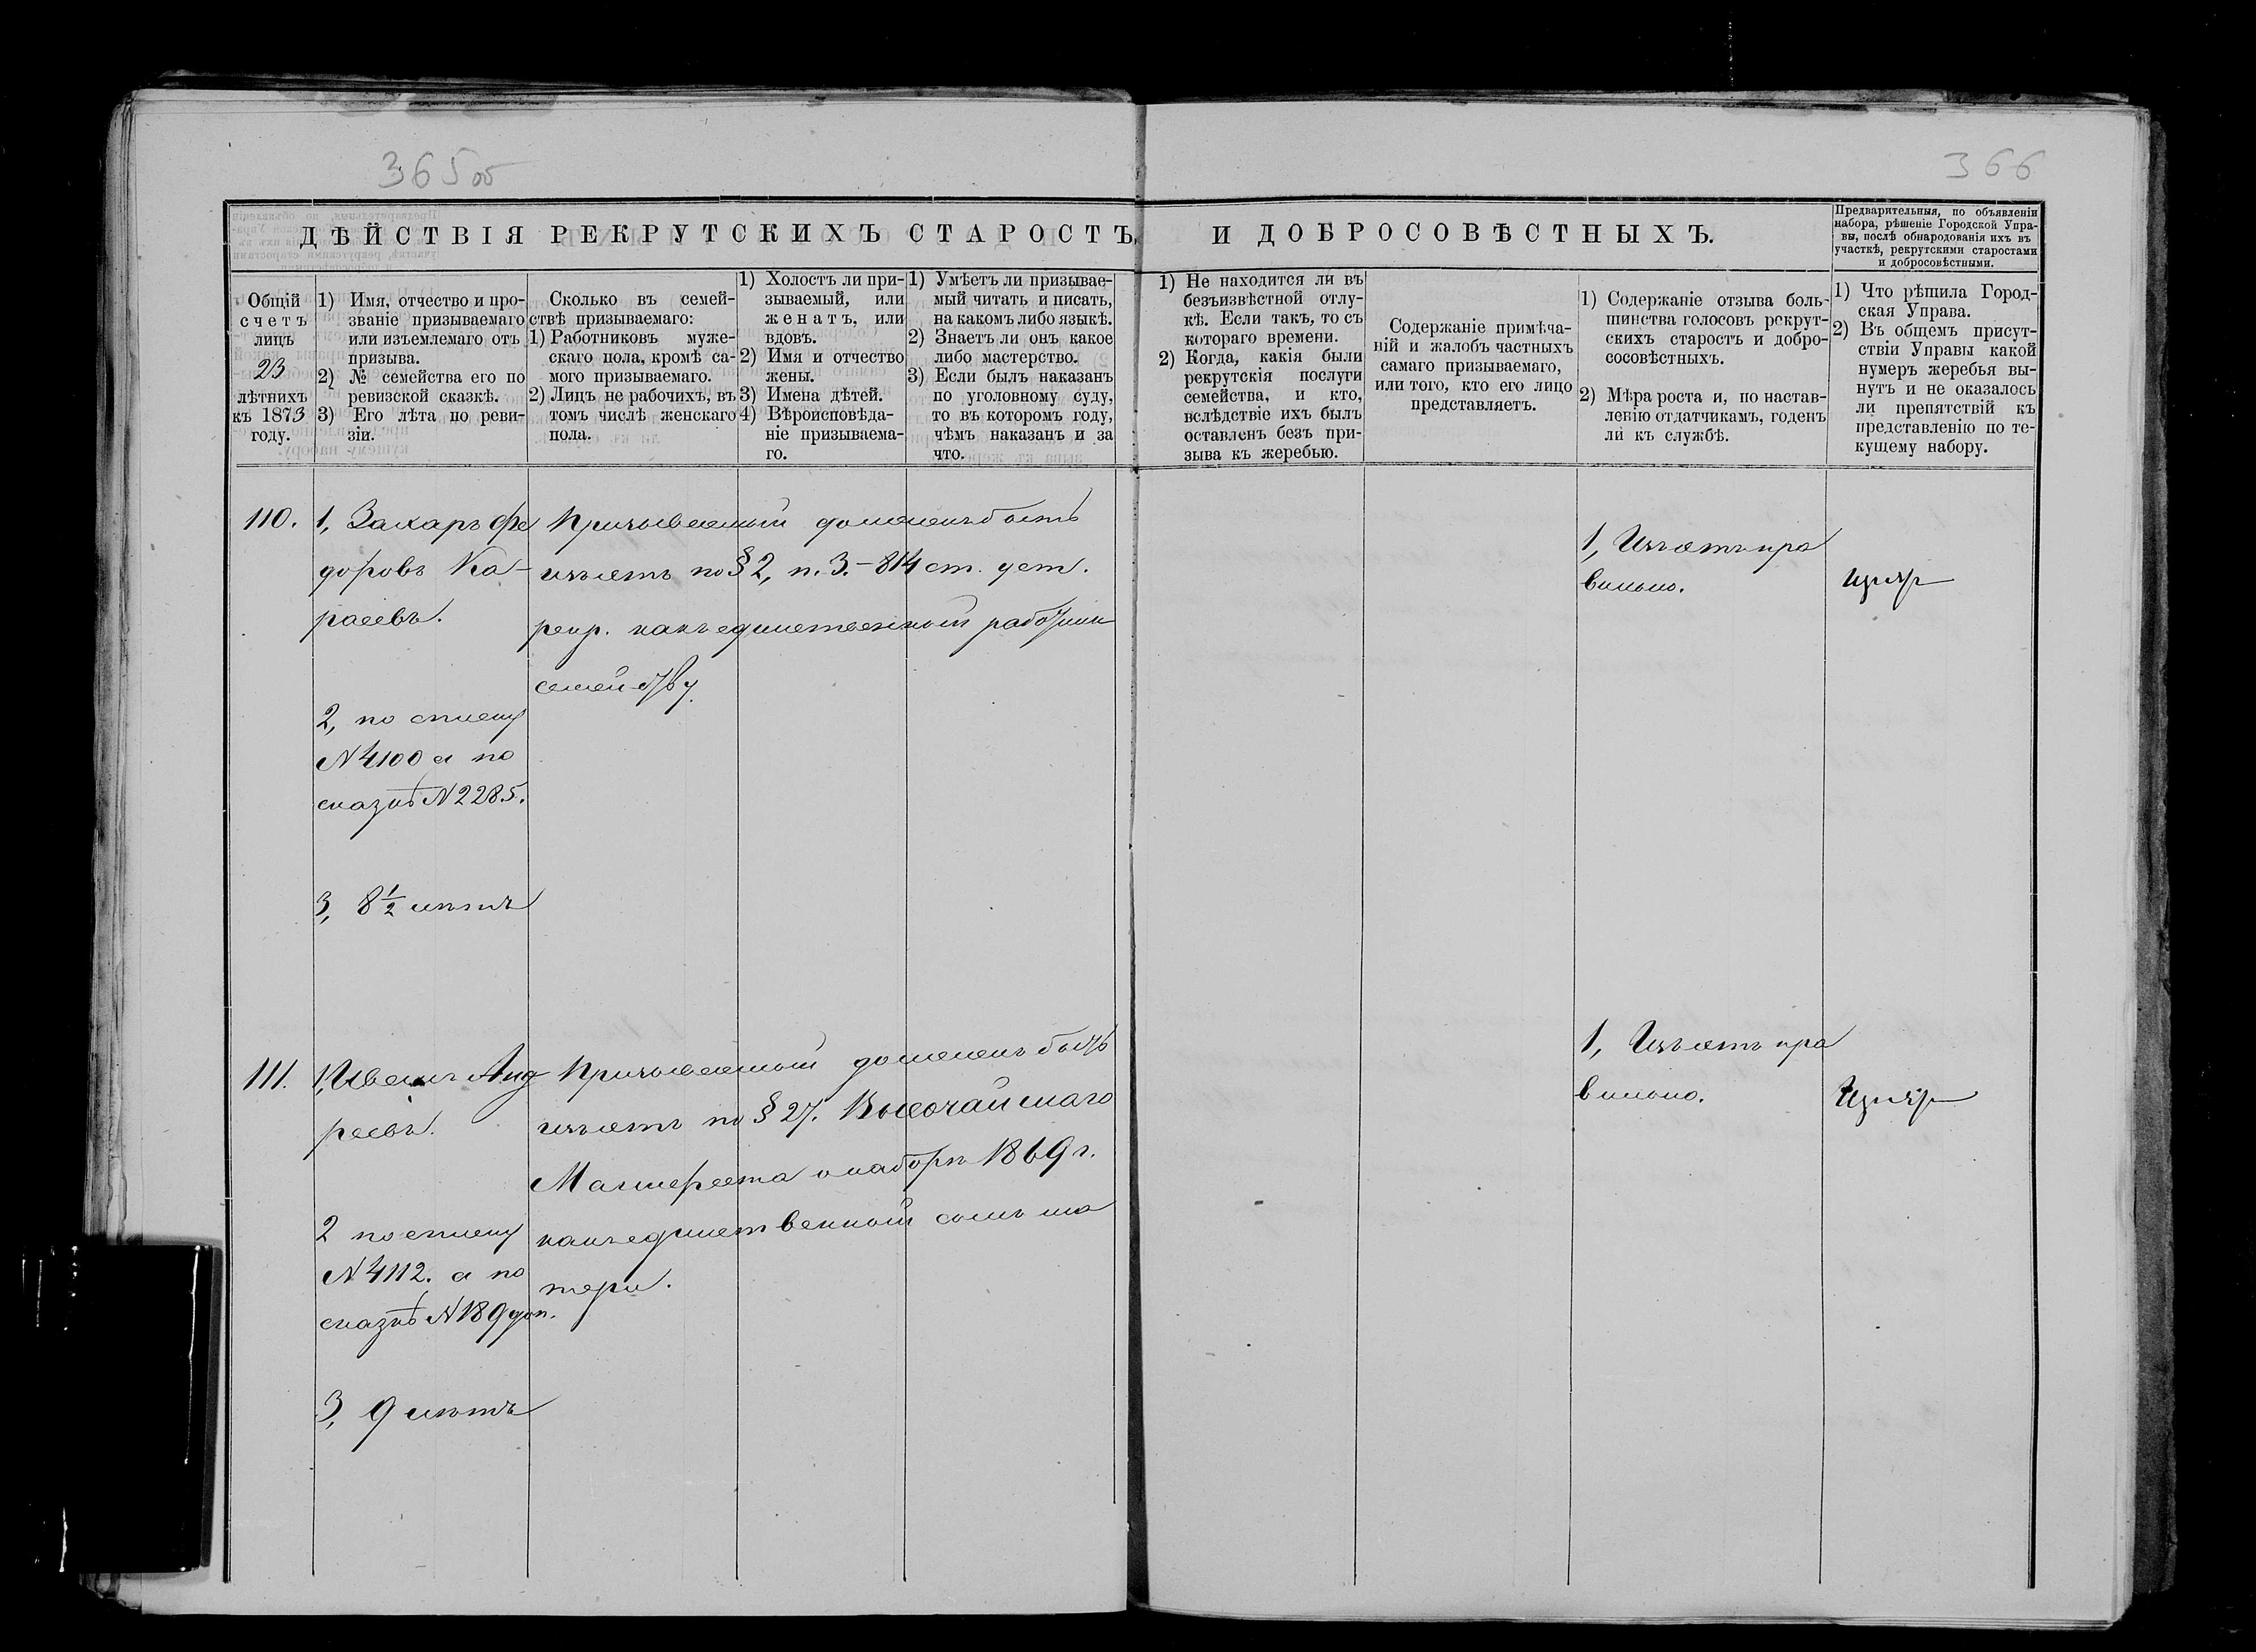 365 об
366
ДѢЙСТВІЯ РЕКРУТСКИХЪ СТАРОСТЪ, И ДОБРОСОВѢСТНЫХЪ.
Предварительныя, по объявленіи
набора, рѣшеніе Городской Упра-
вы, послѣ обнародованія ихъ въ
участкѣ, рекрутскими старостами
и добросовѣстными.
Общій
счетъ
лицъ
23
лѣтнихъ
къ 1873
году.
1) Имя, отчество и про-
званіе призываемаго
или изъемлемаго отъ
призыва.
2) № семейства его по
ревизской сказкѣ.
3) Его лѣта по реви-
зіи.
Сколько въ семей-
ствѣ призываемаго:
1) Работниковъ муже-
скаго пола, кромѣ са-
мого призываемаго.
2) Лицъ не рабочихъ, въ
томъ числѣ женскаго
пола.
1) Холостъ ли при-
зываемый, или
женатъ, или
вдовъ.
2) Имя и отчество
жены.
3) Имена дѣтей.
4) Вѣроисповѣда-
ніе призываема-
го.
1) Умѣетъ ли призывае-
мый читать и писать,
на какомъ либо языкѣ.
2) Знаетъ ли онъ какое
либо мастерство.
3) Если былъ наказанъ
по уголовному суду,
то въ которомъ году,
чѣмъ наказанъ и за
что.
1) Не находится ли въ
безъизвѣстной отлу-
кѣ. Если такъ, то съ
котораго времени.
2) Когда, какія были
рекрутскія послуги
семейства, и кто,
вслѣдствіе ихъ былъ
оставленъ безъ при-
зыва къ жеребью.
Содержаніе примѣча-
ній и жалобъ частныхъ
самаго призываемаго,
или того, кто его лицо
представляетъ.
1) Содержаніе отзыва боль-
шинства голосовъ рекрут-
скихъ старостъ и добро-
сосовѣстныхъ.
2) Мѣра роста и, по настав-
ленію отдатчикамъ, годенъ
ли къ службѣ.
1) Что рѣшила Город-
ская Управа.
2) Въ общемъ присут-
ствіи Управы какой
нумеръ жеребья вы-
нутъ и не оказалось
ли препятствій къ
представленію по те-
кущему набору.
110.
1, Захаръ Фе
доровъ Ка-
раевъ.
2, по списку
N 4100 а по
сказкѣ N 2285.
3, 8½ лѣтъ
Призываемый долженъ быть
изъятъ по § 2, п. 3. – 814 ст. уст.
рекр. какъ единственный работникъ
семейству.
1, Изъятъ пра
вильно.
111.
1, Иванъ Анд
реевъ.
2 по списку
N 4112. а по
сказкѣ N 189 доп.
3, 9 лѣтъ
Призываемый долженъ быть
изъятъ по § 27. Высочайшаго
Манифеста о наборѣ 1869 г.
какъ единственный сынъ ма
тери.
1, Изъятъ пра
вильно.